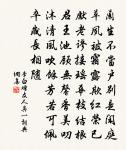 蘭生不當戶別是閑庭
草夙被霜露欺紅榮已
先老謬接瑤華枝結根
君王池顧無馨香美叨
沐清風吹餘芳若可佩
卒歲長相隨
李白贈友人其一